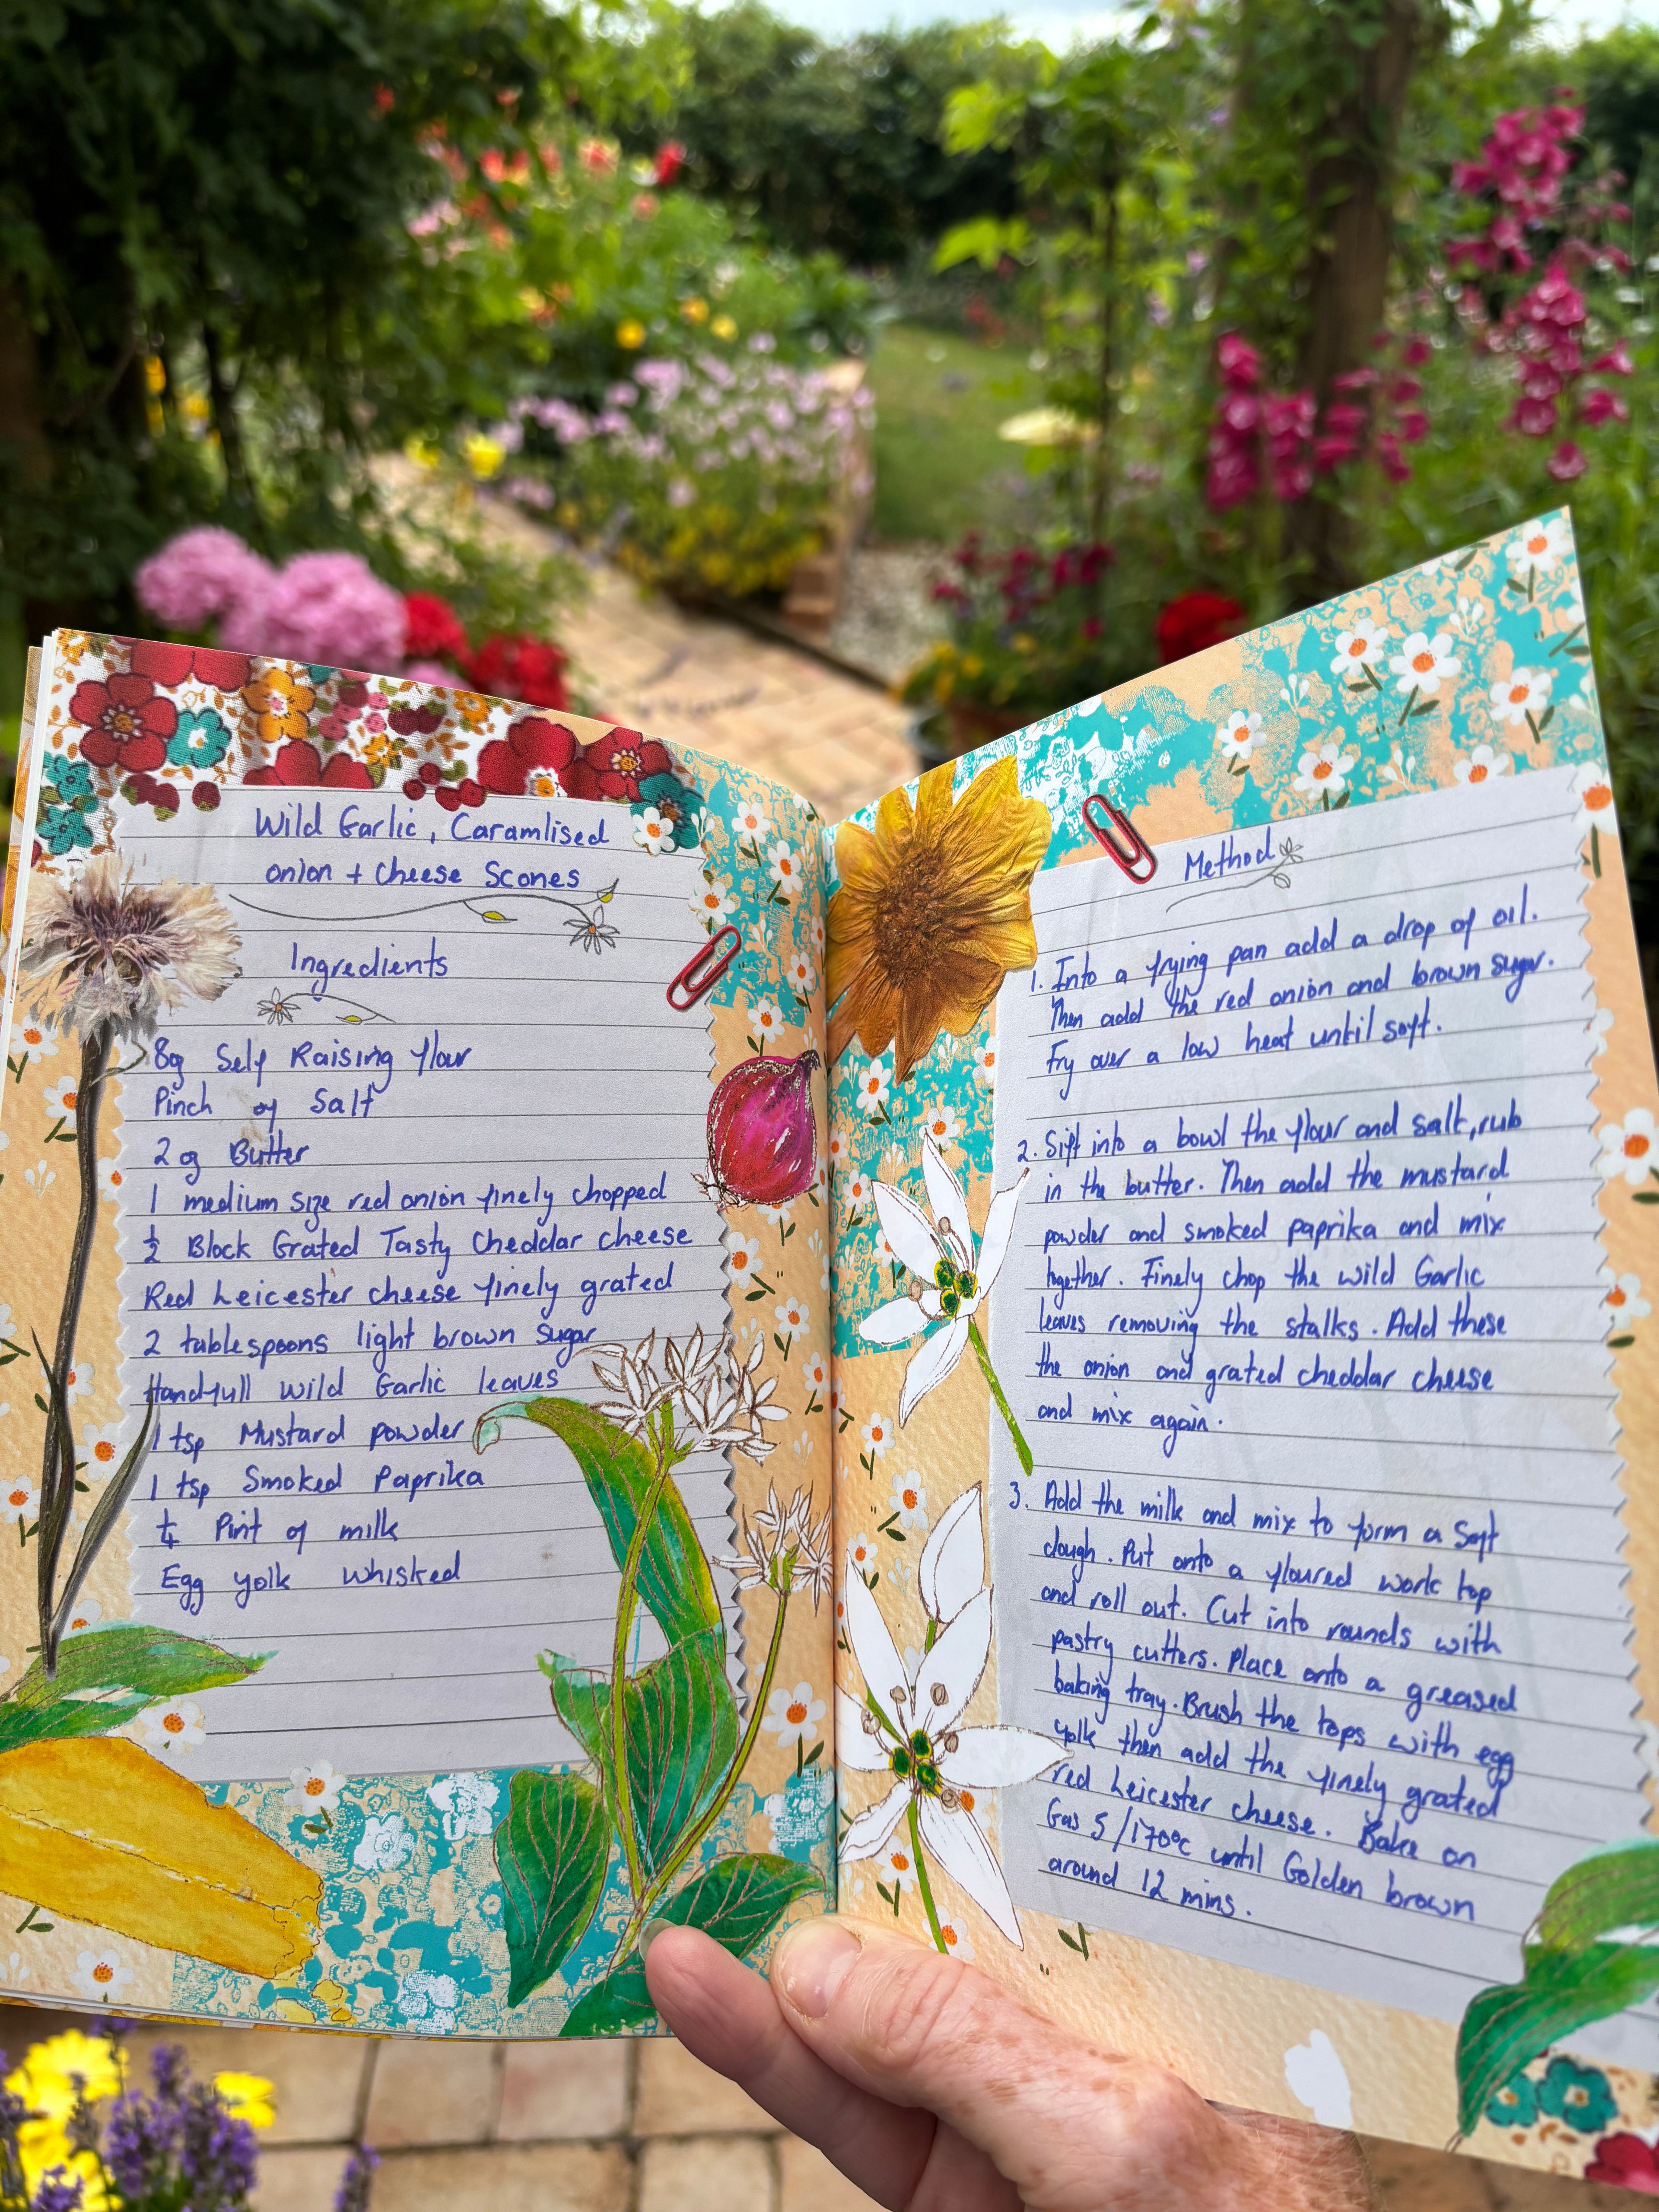 Wild Garlic, Caramlised
onion + cheese Scones
Ingredients
8g Self Raising flour
Pinch of Salt
2g Butter
1 medium size red onion finely chopped
½ Block Grated Tasty Cheddar cheese
Red Leicester cheese finely grated
2 tablespoons light brown sugar
Handfull wild Garlic leaves
1 tsp Mustard powder
1 tsp Smoked Paprika
¼ Pint of milk
Egg yolk whisked
Method
1. Into a frying pan add a drop of oil.
Then add the red onion and brown sugar.
Fry over a low heat until soft.
2. Sift into a bowl the flour and salt, rub
in the butter. Then add the mustard
powder and smoked paprika and mix
together. Finely chop the wild Garlic
leaves removing the stalks. Add these
the onion and grated cheddar cheese
and mix again.
3. Add the milk and mix to form a soft
dough. Put onto a floured work top
and roll out. Cut into rounds with
pastry cutters. Place onto a greased
baking tray. Brush the tops with egg
yolk then add the finely grated
red Leicester cheese. Bake on
Gas 5/170°c until Golden brown
around 12 mins.